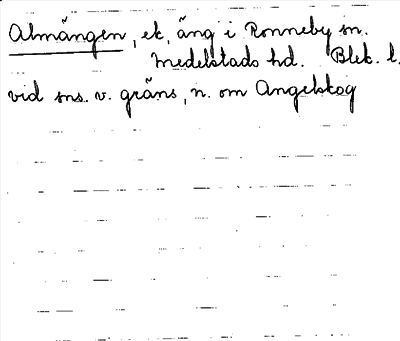 Almängen, ek, äng i Ronneby sn.
Medelstads hd. Blek. l.
vid sns. v. gräns, n. om Angelskog